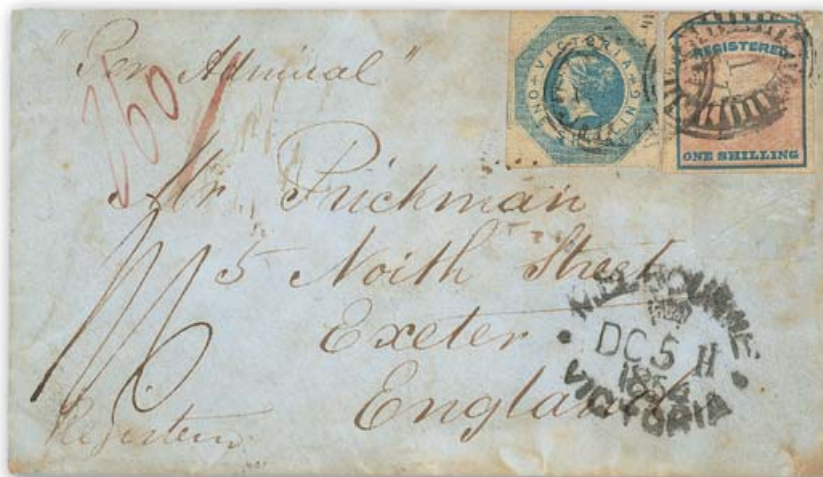 "Per Admiral"
260
VICTORIA ONE SHILLING
REGISTERED
ONE SHILLING
Mr Prickman
5 North Street
Exeter
England
Register
MELBOURNE
DC 5 H
1854
VICTORIA